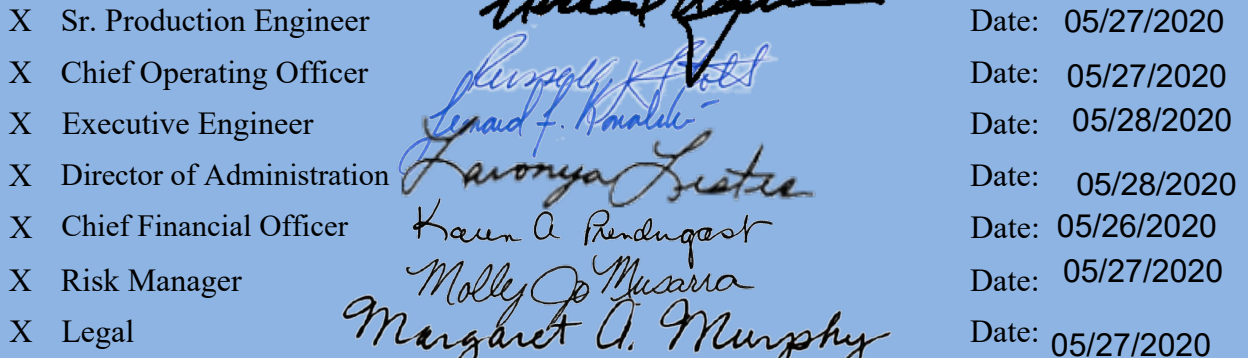 X Sr. Production Engineer Date: 05/27/2020
X Chief Operating Officer Russell Stott Date: 05/27/2020
X Executive Engineer Lenard F. Date: 05/28/2020
X Director of Administration Lavonya Lester Date: 05/28/2020
X Chief Financial Officer Karen A Prendergast Date: 05/26/2020
X Risk Manager Molly Jo Musarra Date: 05/27/2020
X Legal Margaret A. Murphy Date: 05/27/2020